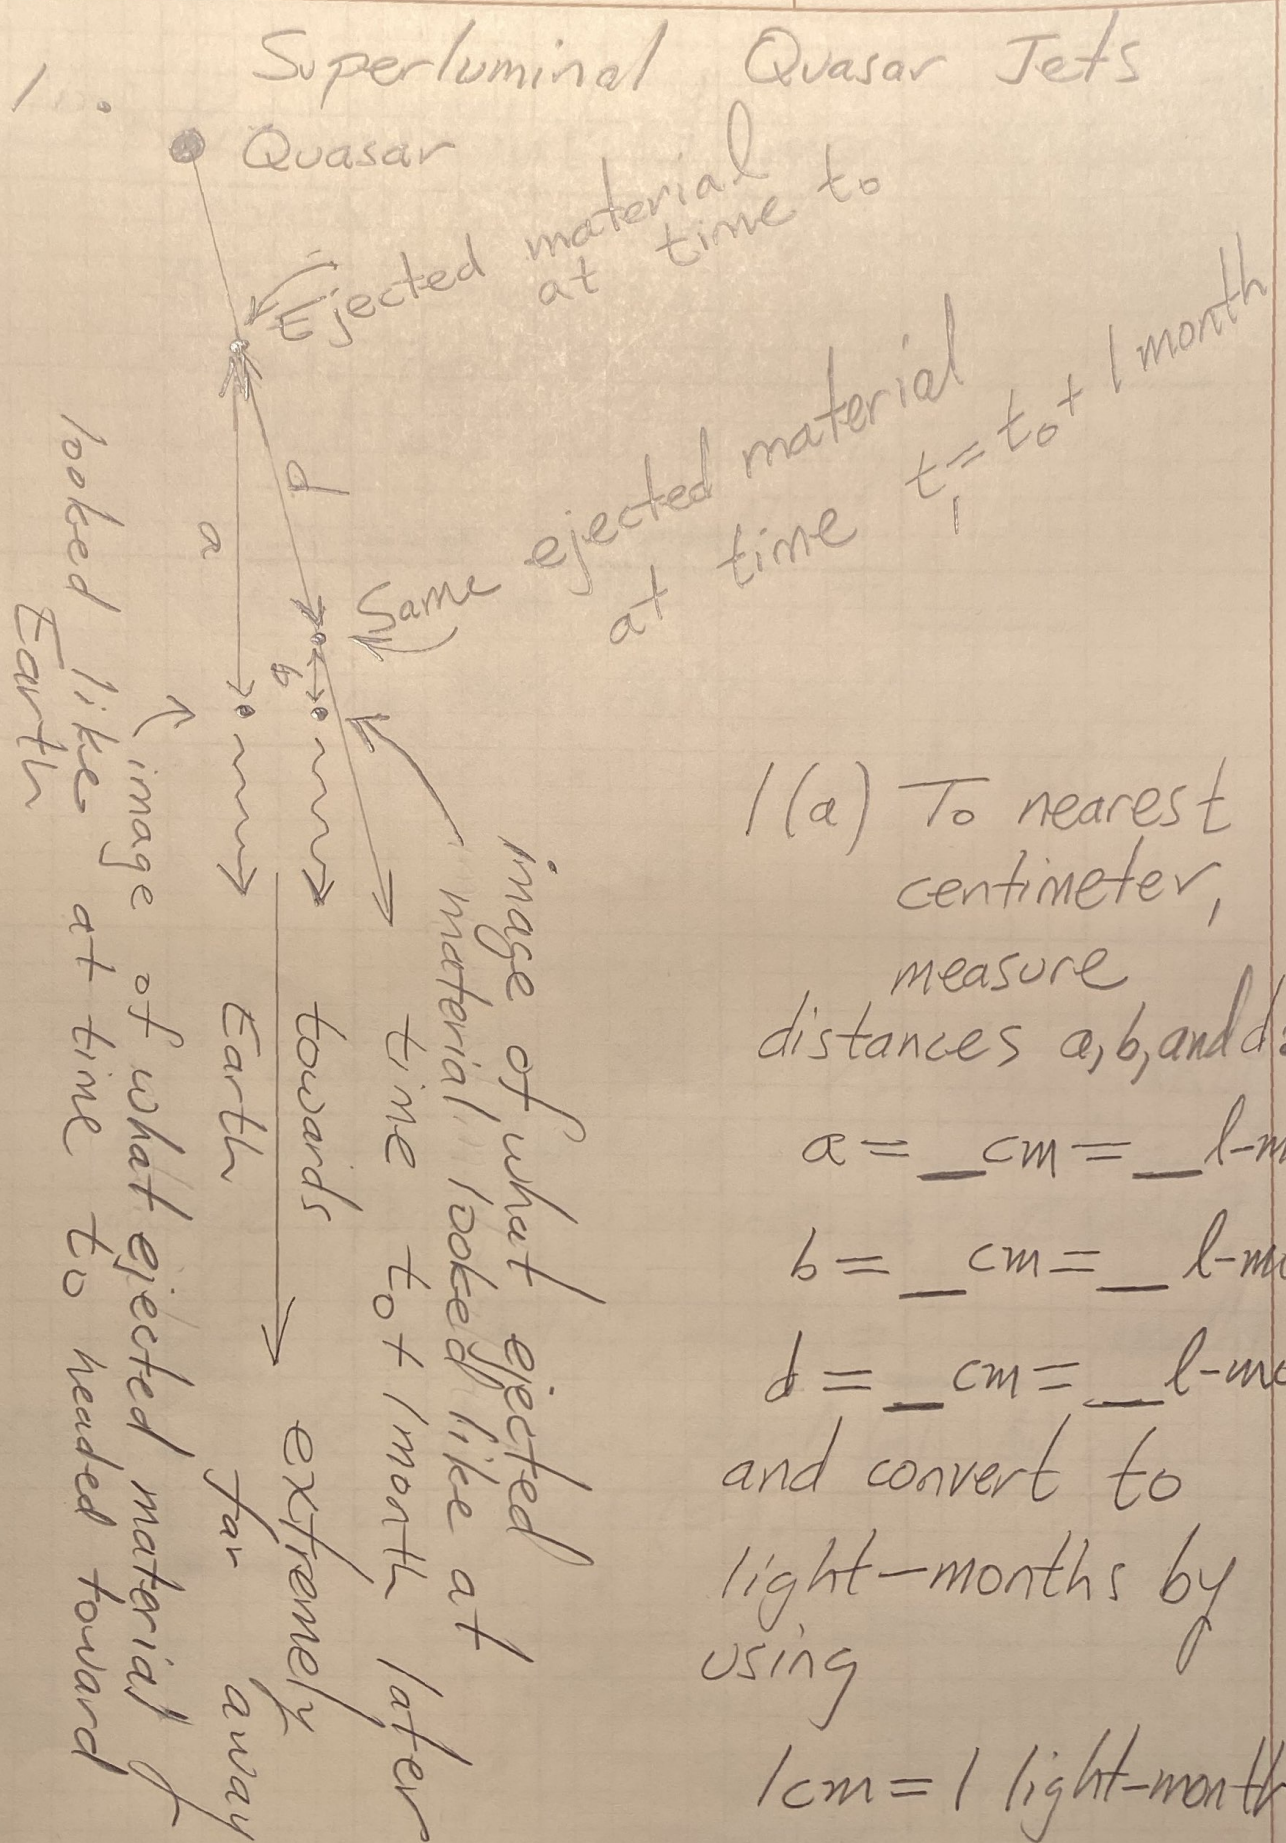 Superluminal Quasar Jets
1.
Quasar
Ejected material
at time t₀
Same ejected material
at time t₁ = t₀ + 1 month
a
d
b
image of what ejected material
looked like at time t₀ headed toward
Earth
towards
Earth
extremely
far away
image of what ejected
material looked like at
time t₀ + 1 month later
1(a) To nearest
centimeter,
measure
distances a, b, and d:
a = _ cm = _ l-m
b = _ cm = _ l-mo
d = _ cm = _ l-mo
and convert to
light-months by
using
1cm = 1 light-month